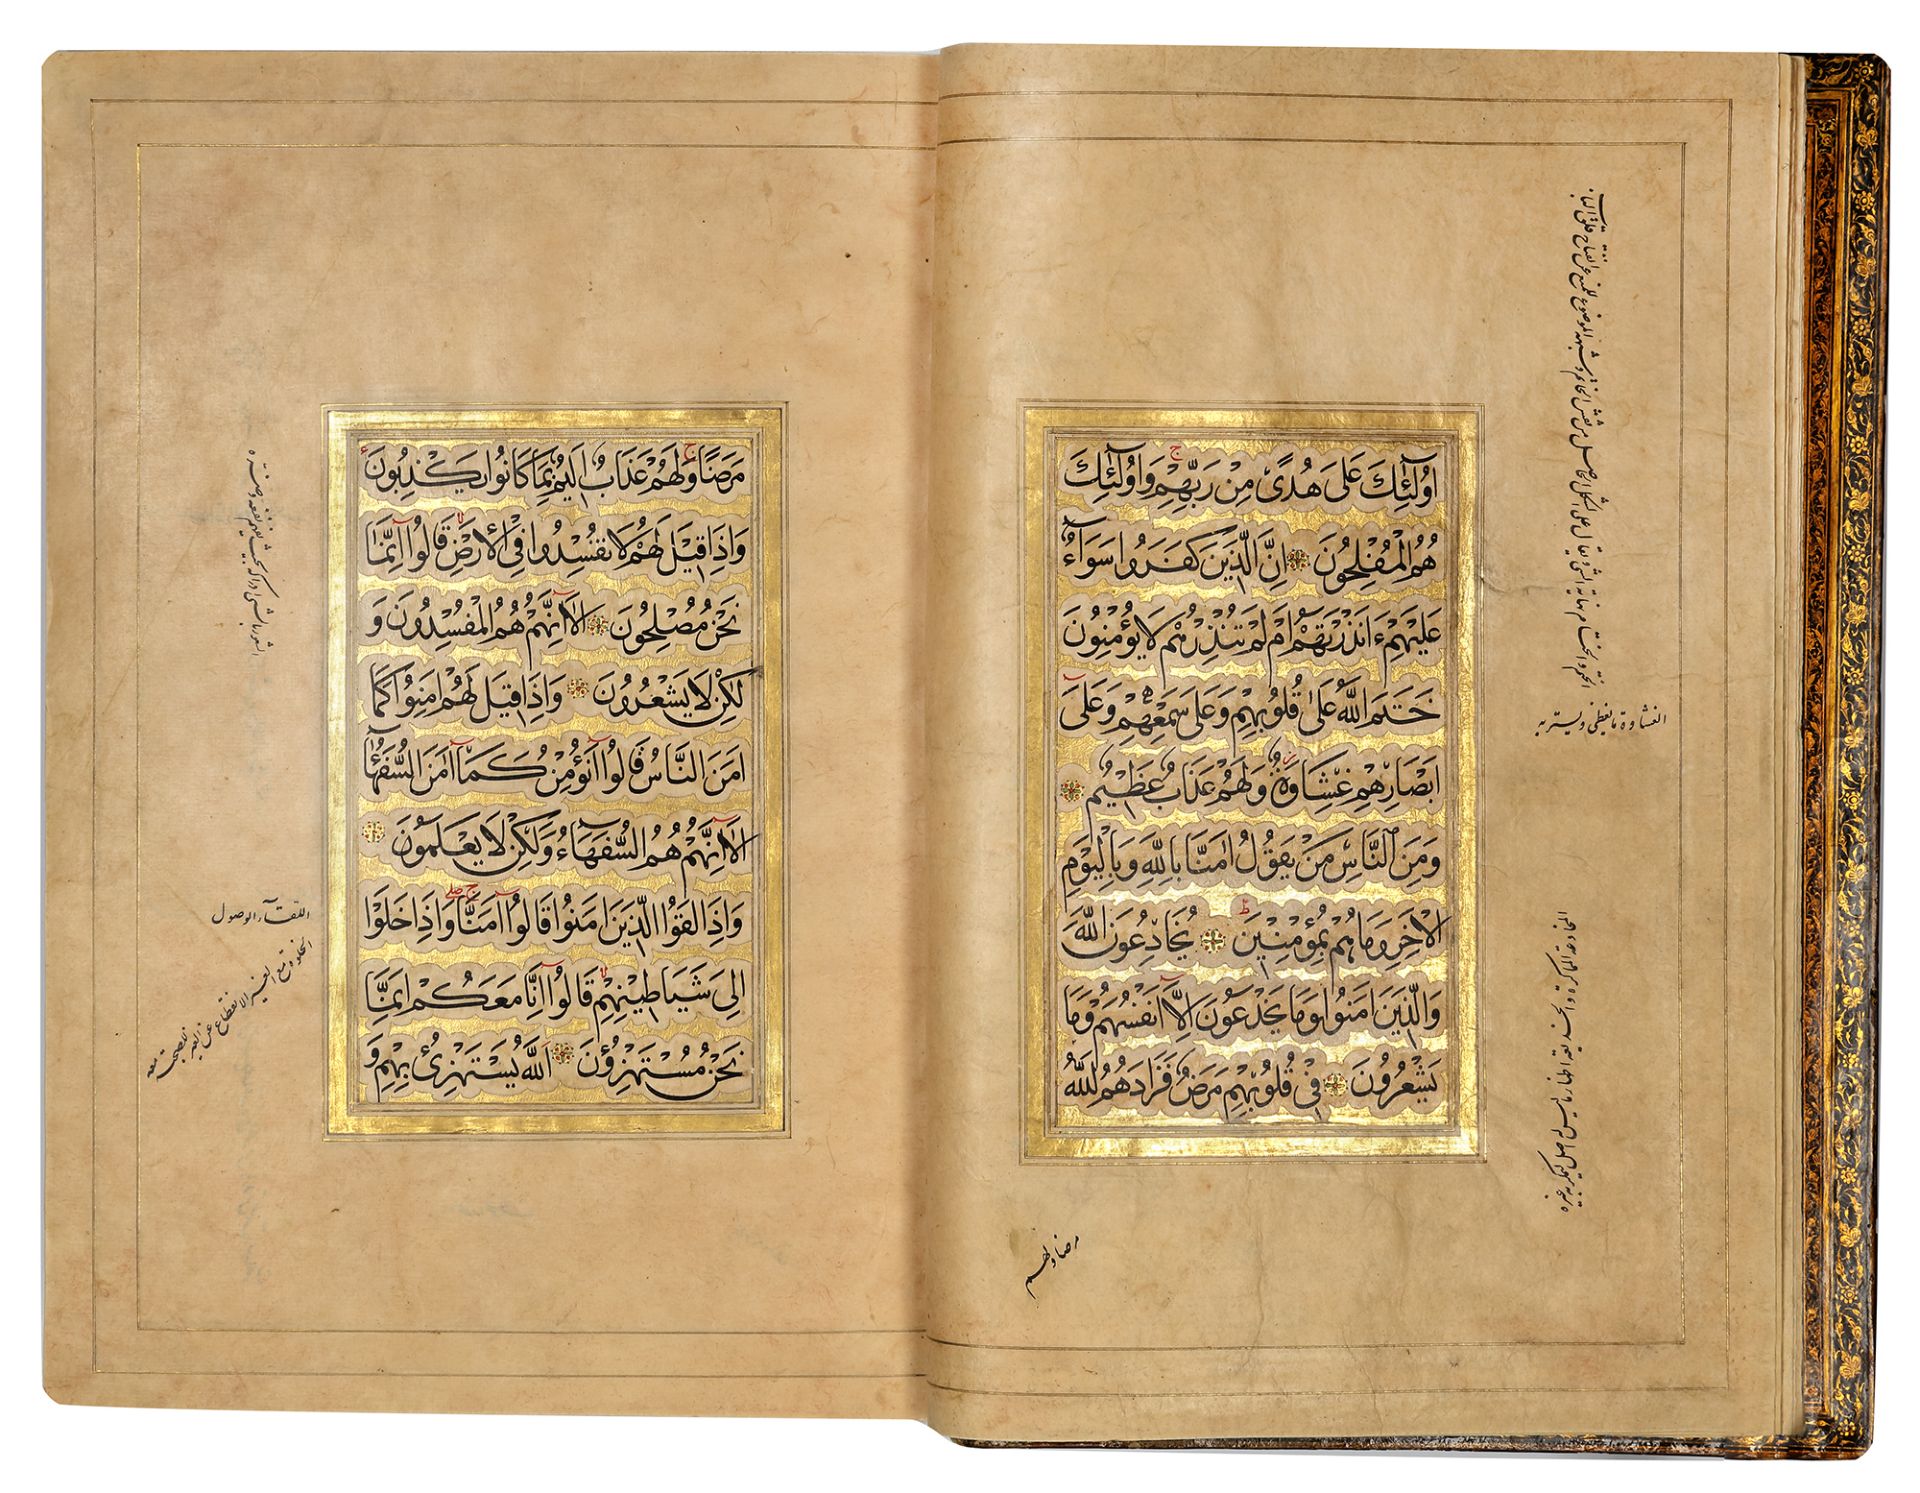 اُولٰٓئِكَ عَلٰى هُدًى مِنْ رَبِّهِمْ وَاُولٰٓئِكَ
هُمُ الْمُفْلِحُونَ اِنَّ الَّذِينَ كَفَرُوا سَوَآءٌ
عَلَيْهِمْ ءَاَنْذَرْتَهُمْ اَمْ لَمْ تُنْذِرْهُمْ لَا يُؤْمِنُونَ
خَتَمَ اللّٰهُ عَلٰى قُلُوبِهِمْ وَعَلٰى سَمْعِهِمْ وَعَلٰٓى
اَبْصَارِهِمْ غِشَاوَةٌ وَلَهُمْ عَذَابٌ عَظِيمٌ
وَمِنَ النَّاسِ مَنْ يَقُولُ اٰمَنَّا بِاللّٰهِ وَبِالْيَوْمِ
الْاٰخِرِ وَمَا هُمْ بِمُؤْمِنِينَ يُخَادِعُونَ اللّٰهَ
وَالَّذِينَ اٰمَنُوا وَمَا يَخْدَعُونَ اِلَّآ اَنْفُسَهُمْ وَمَا
يَشْعُرُونَ فِى قُلُوبِهِمْ مَرَضٌ فَزَادَهُمُ اللّٰهُ
الغشاوة ما يغطى ويستر به
المخادعة المماكرة والخديعة اظهار ما ليس فى الاصل
مرضا ولهم
مَرَضًا وَلَهُمْ عَذَابٌ اَلِيمٌ بِمَا كَانُوا يَكْذِبُونَ
وَاِذَا قِيلَ لَهُمْ لَا تُفْسِدُوا فِى الْاَرْضِ قَالُوٓا اِنَّمَا
نَحْنُ مُصْلِحُونَ اَلَآ اِنَّهُمْ هُمُ الْمُفْسِدُونَ وَ
لٰكِنْ لَا يَشْعُرُونَ وَاِذَا قِيلَ لَهُمْ اٰمِنُوا كَمَآ
اٰمَنَ النَّاسُ قَالُوٓا اَنُؤْمِنُ كَمَآ اٰمَنَ السُّفَهَآءُ
اَلَآ اِنَّهُمْ هُمُ السُّفَهَآءُ وَلٰكِنْ لَا يَعْلَمُونَ
وَاِذَا لَقُوا الَّذِينَ اٰمَنُوا قَالُوٓا اٰمَنَّا وَاِذَا خَلَوْا
اِلٰى شَيَاطِينِهِمْ قَالُوٓا اِنَّا مَعَكُمْ اِنَّمَا
نَحْنُ مُسْتَهْزِؤُنَ اَللّٰهُ يَسْتَهْزِئُ بِهِمْ وَ
اللقاء الوصول